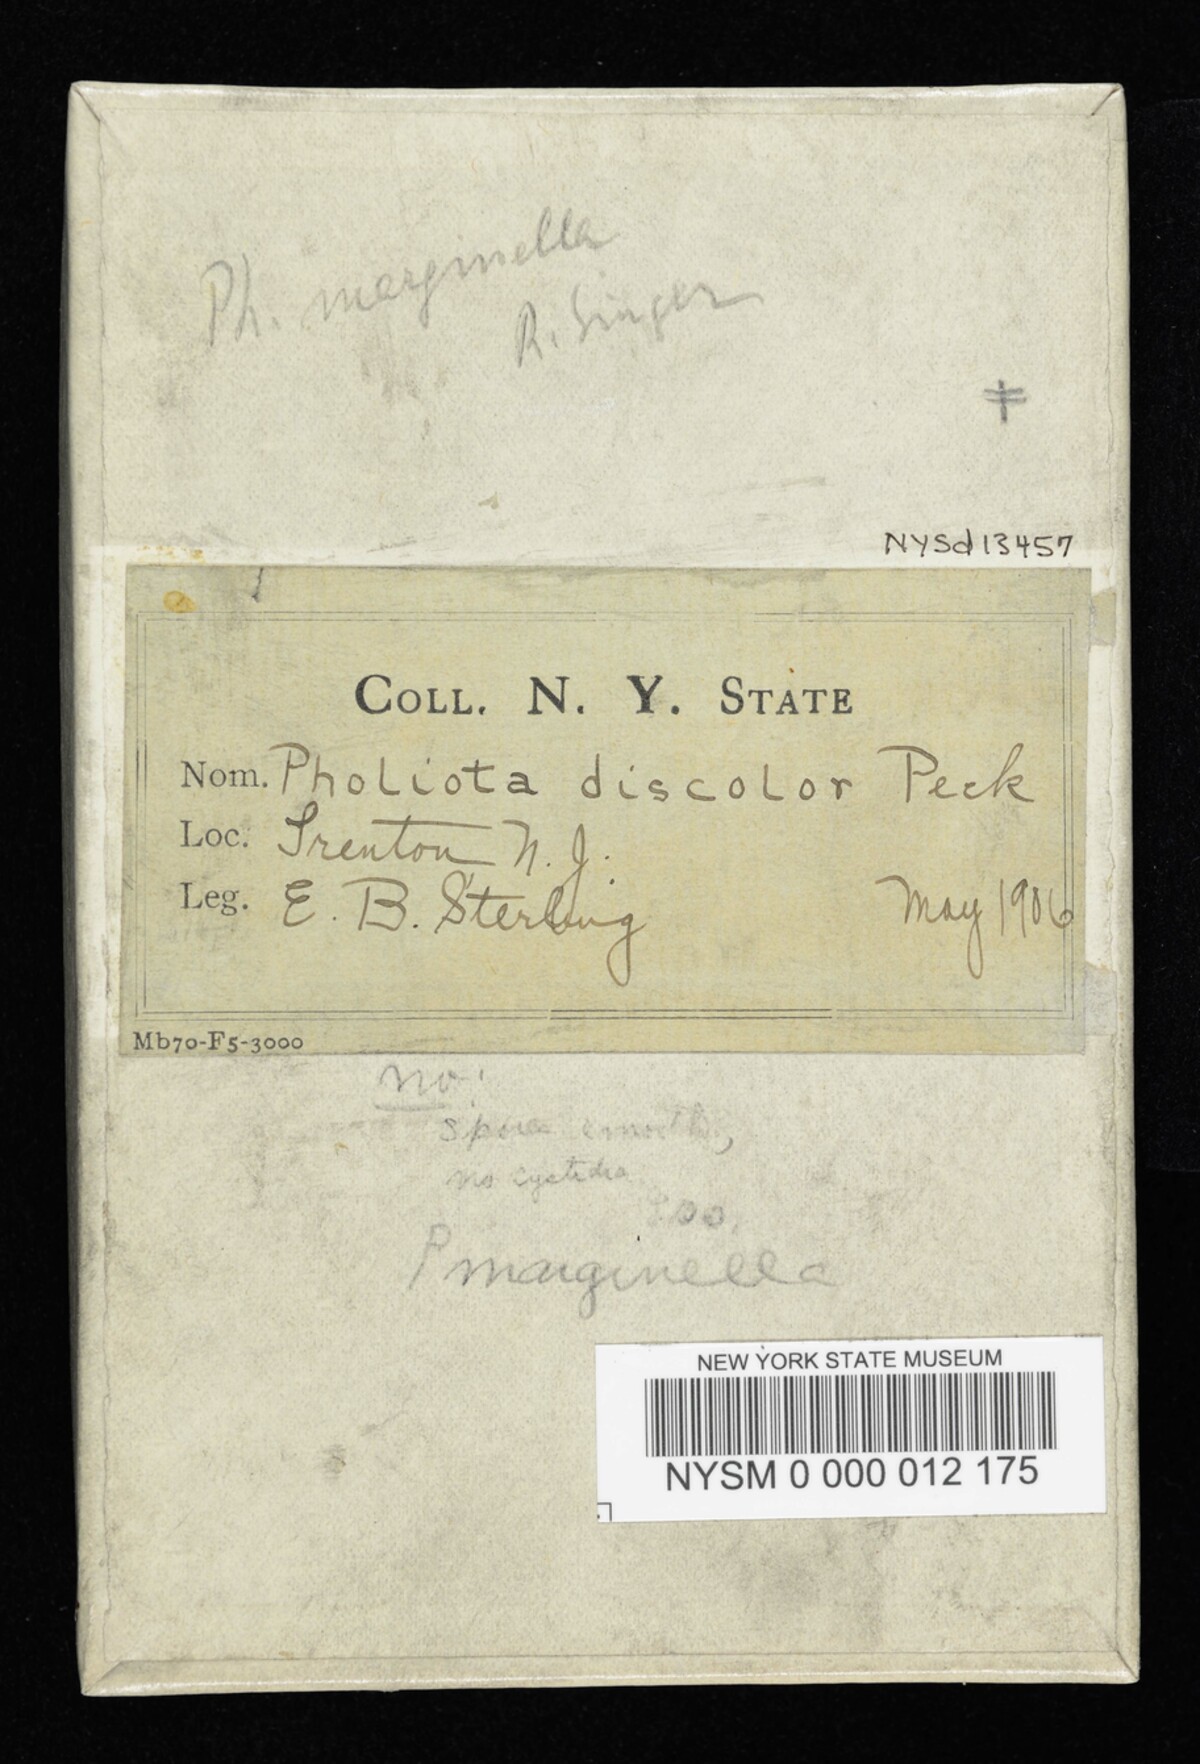 Ph. marginella
R. Singer
NYSd13457
COLL. N. Y. STATE
Nom. Pholiota discolor Peck
Loc. Trenton N. J.
Leg. E. B. Sterling May 1906
Mb70-F5-3000
no!
spores smooth,
no cystidia
P marginella
NEW YORK STATE MUSEUM
NYSM 0 000 012 175